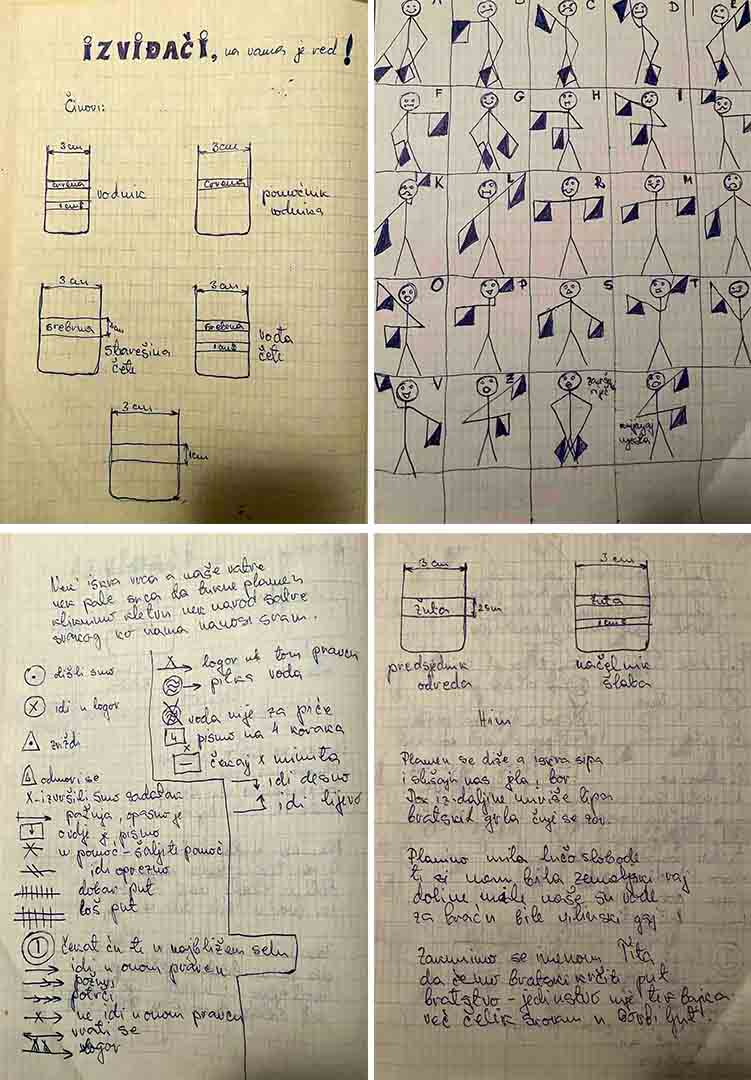 IZVIĐAČI, na vama je red!
Činovi:
3 cm
3 cm
crvena
1 cm
vodnik
crvena
pomoćnik
vodnika
3 cm
3 cm
srebrna
starešina
čete
srebrna
1 cm
vođa
čete
3 cm
1 cm
A
C
D
F
G
H
I
K
L
R
M
O
P
S
T
V
Z
Nek' iskra vrca a naše vatre
nek pale srca da bukne plamen
kliknimo kletvu nek narod satre
svakog ko nama nanosi sram.
došli smo
idi u logor
zviždi
odmori se
X-izvršili smo zadatak
pažnja, opasno je
ovdje je pismo
u pomoć - šaljite pomoć
idi oprezno
dobar put
loš put
1 čekat ću te u najbližem selu
idi u ovom pravcu
požuri
potrči
ne idi u ovom pravcu
vrati se
logor
logor u tom pravcu
pitka voda
voda nije za piće
4 pismo na 4 koraka
x
čekaj x minuta
idi desno
idi lijevo
3 cm
3 cm
žuta
žuta
1 cm
predsjednik
odreda
načelnik
štaba
Him
Plamen se diže a iskra sipa
i slušaju nas jela i bor.
Dok iz daljine miriše lipa
bratskih grla čuje se zov.
Planino mila lučo slobode
ti si nam bila zemaljski raj
doline male naše su vode
za braću bile vilinski gaj!
Zakunimo se imenom Tita
da ćemo bratski krčiti put
bratstvo - jedinstvo nije tek bajka
već čelik skovan u borbi ljut.